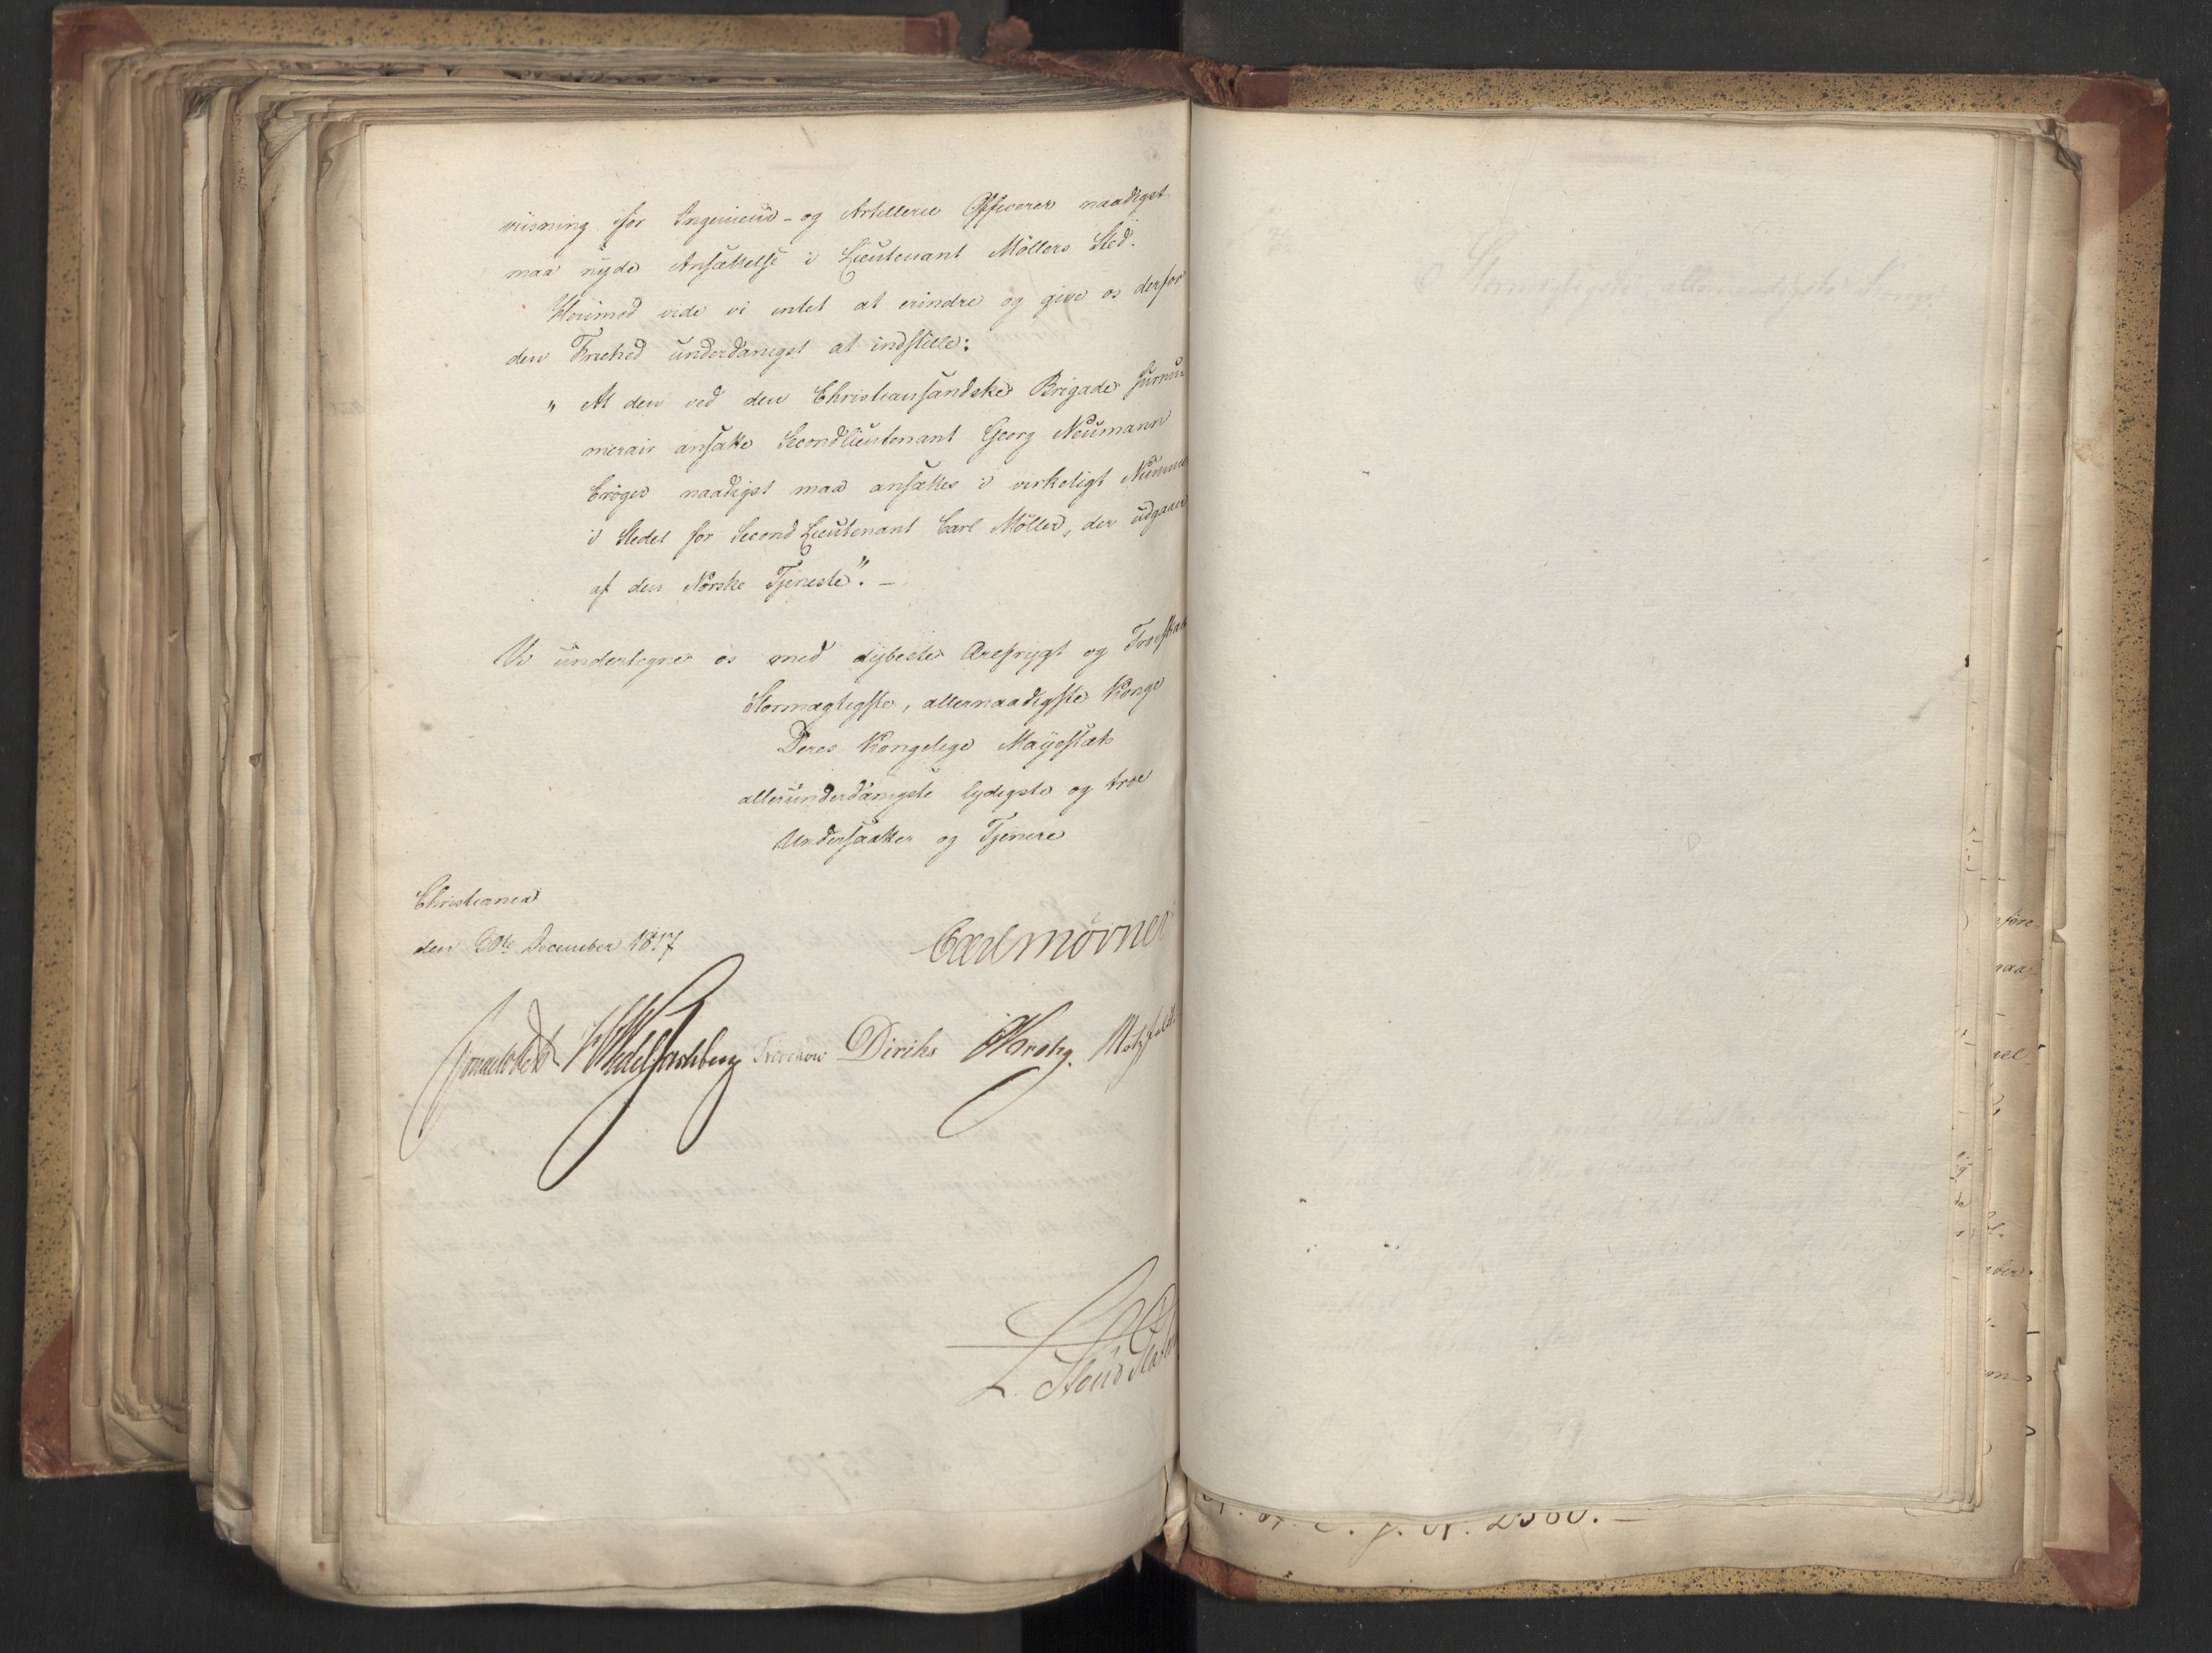 viisning for Ingenieur- og Artillerie Officerer naadigst
maa nyde Ansættelse i Lieutenant Møllers Sted.
Herimod vide vi intet at erindre og give os derfor
den Friehed underdanigst at indstille:
" At den ved den Christiansandske Brigade surnu-
merair ansatte Secondlieutenant Georg Neumann
Crøger naadigst maa ansættes i virkeligt Nummer
i Stedet for Second Lieutenant Carl Møller, der udgaaer
af den Norske Tjeneste". –
Vi undertegne os med dybeste Ærefrygt og Troskab
Stormægtigste, allernaadigste Konge
Deres Kongelige Mayestæts
allerunderdanigste lydigste og troe
Undersaatter og Tjenere
Christiania
den 30te December 1817
Carl Mörner
Sommerhielm Wedel Jarlsberg Treschow Diriks Krohg. Motzfeldt
L. Stoud Platou
2560. –